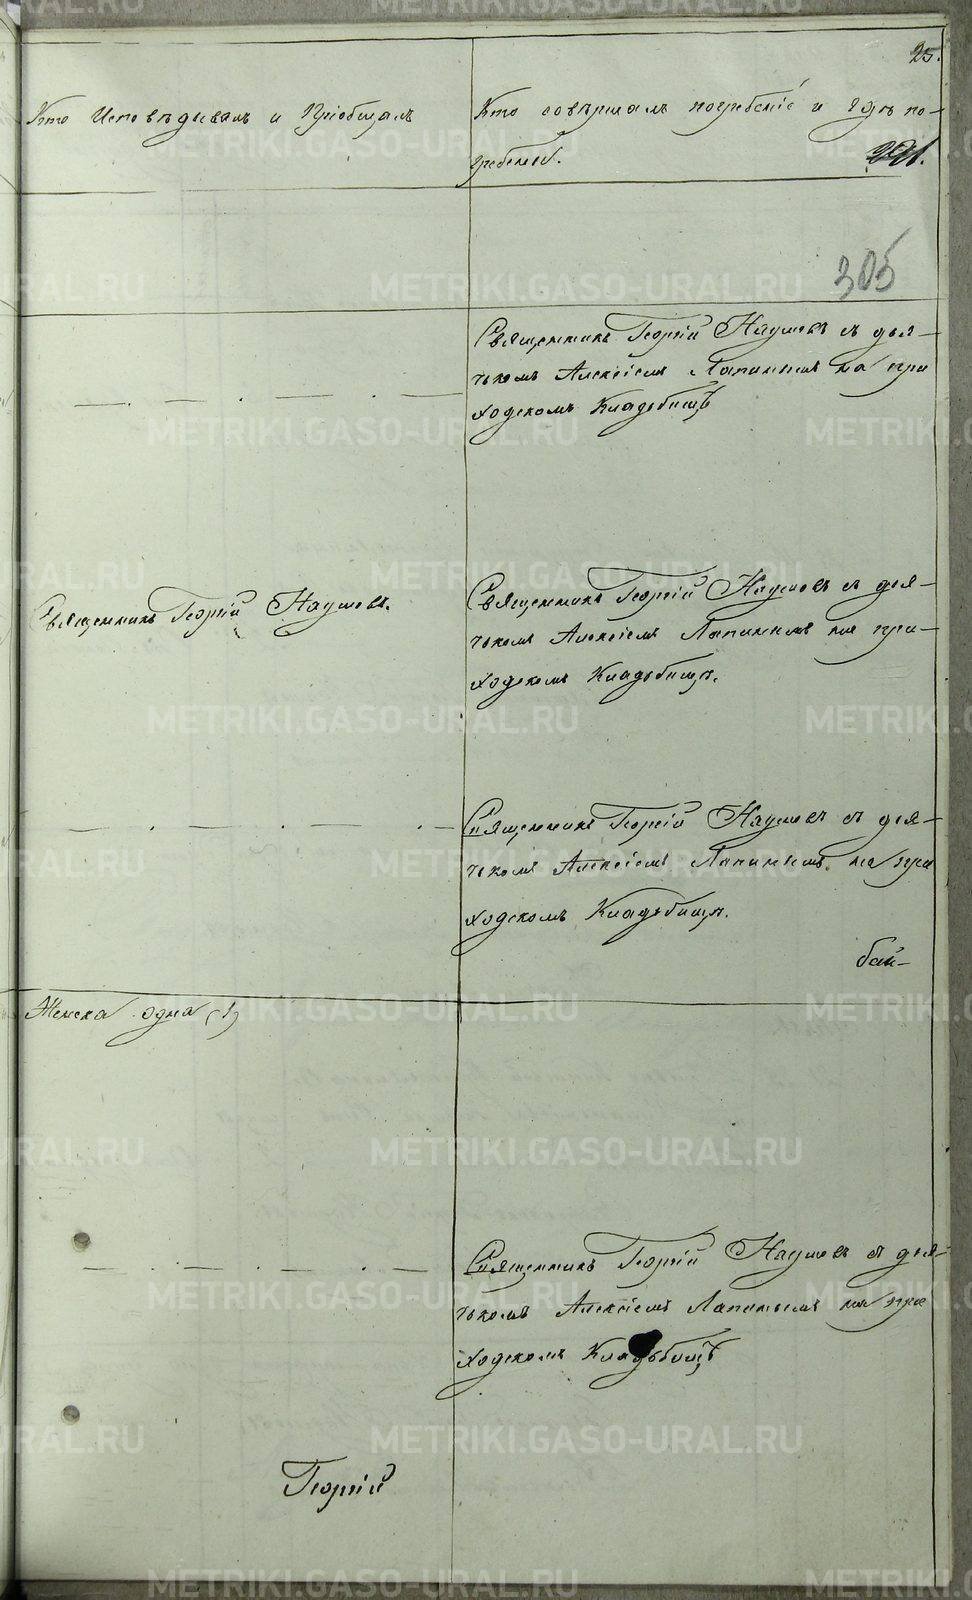 25.
Кто Исповѣдывалъ и Пріобщалъ
Кто совѣршалъ погребеніе и гдѣ по-
гребены.
305
Священникъ Георгій Наумовъ съ дья-
чькомъ Алексіемъ Лапинымъ на при
ходскомъ Кладьбищѣ
Священникъ Георгій Наумовъ.
Священникъ Георгій Наумовъ съ дья-
чькомъ Алексіемъ Лапинымъ на при-
ходскомъ Кладьбищѣ.
Священникъ Георгій Наумовъ съ дья-
чькомъ Алексіемъ Лапинымъ на при
ходскомъ Кладьбищѣ.
бай-
Женска одна (1)
Священникъ Георгій Наумовъ съ дья-
чькомъ Алексіемъ Лапинымъ на при
ходскомъ Кладьбищѣ
Георгій
METRIKI.GASO-URAL.RU